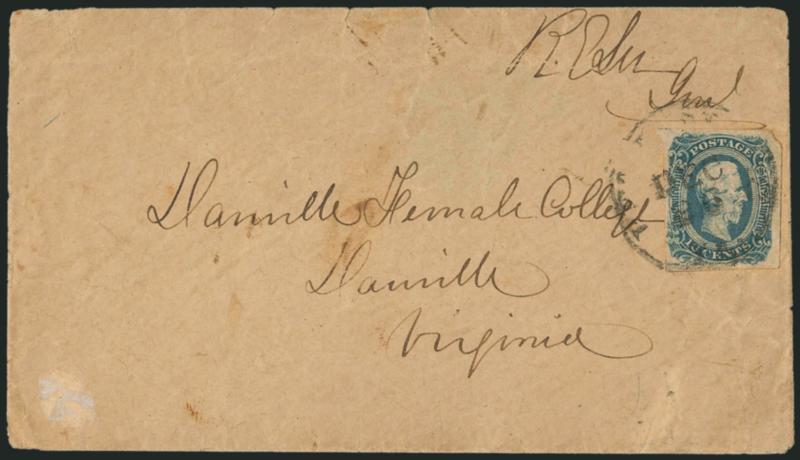 R. E. Lee
Genl
POSTAGE
Danville Female College
Danville
Virginia
CENTS